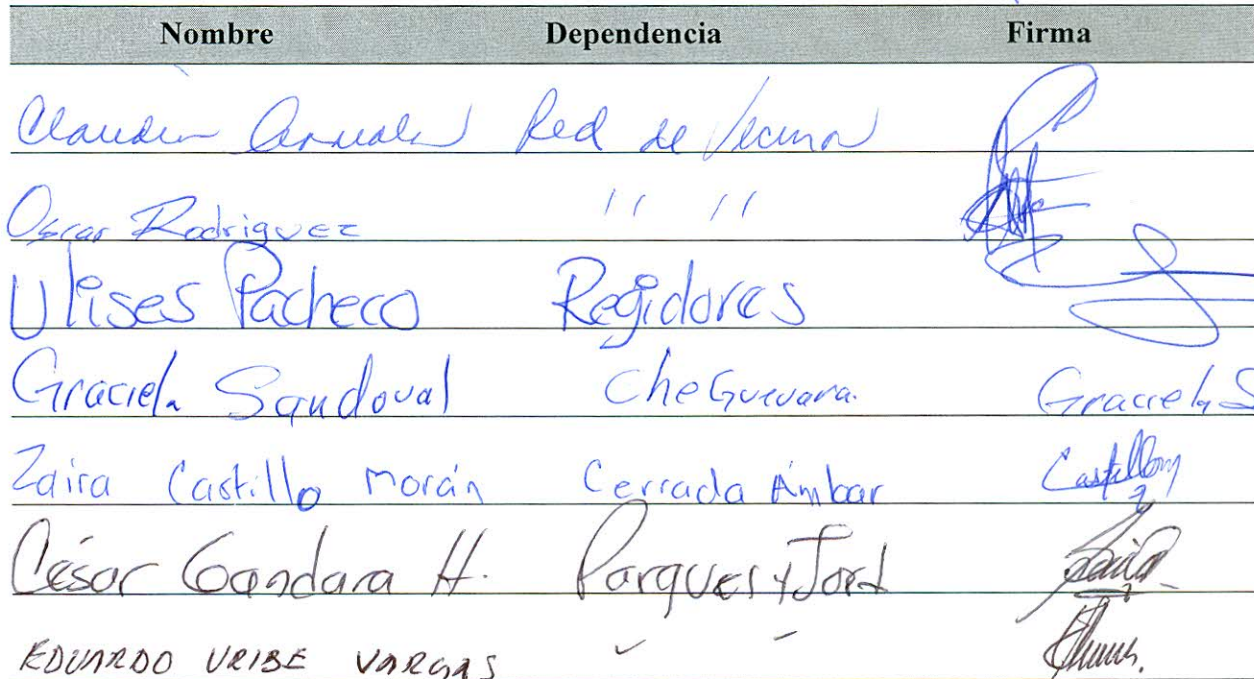 Nombre Dependencia Firma
Claudia Red de Vecinos
Oscar Rodriguez " "
Ulises Pacheco Regidores
Graciela Sandoval Che Guevara. Graciela S
Zaira Castillo Morán Cerrada Ámbar Castillo
César Gandara H. Parques y Jard
EDUARDO URIBE VARGAS " "